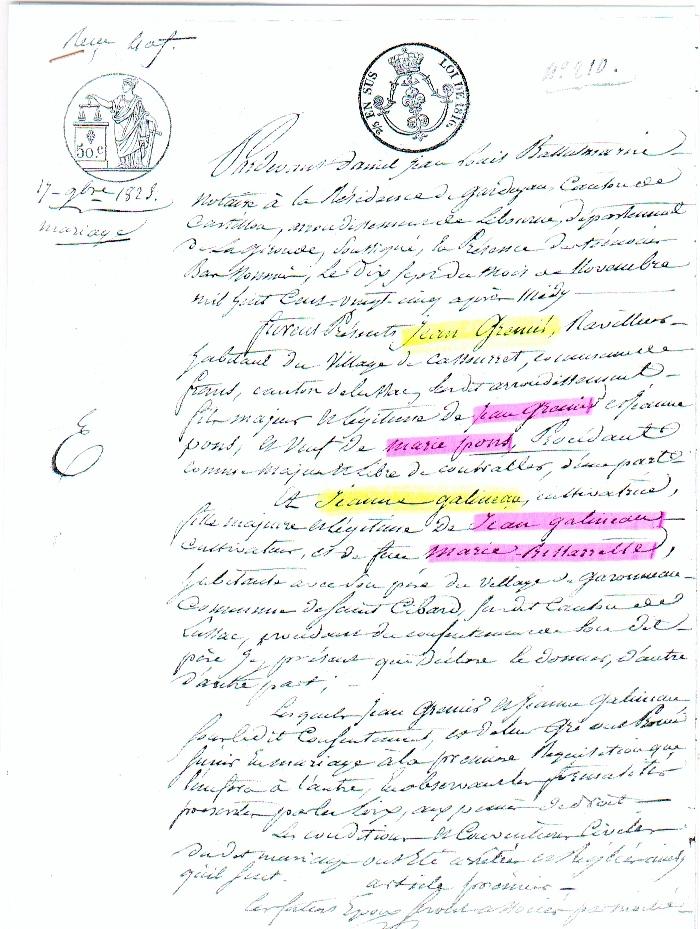 25 EN SUS LOI DE 1816.
50.c
N° 210.
17 9bre 1825.
mariage
Pardevant Daniel Jean Louis
notaire à la Résidence de Gardegan, Canton de
Castillon, arrondissement de Libourne, département
de la Gironde, Soussigné, en Présence des témoins
Bas Nommés, Le Dix Sept du Mois de Novembre
mil huit Cent vingt cinq après Midy
furent Présents Jean Grenié,
habitant du Village de commune de
Francs, canton de Lussac, susdit arrondissement
fils majeur et légitime de Jean Grenié et Jeanne
pons, et veuf de marie pons, Procédant
comme Majeur et Libre de contracter, d'une part
Et Jeanne galineau, cultivatrice,
fille majeure et légitime de Jean galineau
Cultivateur, et de feue marie
habitante avec son père du Village de
Commune de Saint Cibard, susdit Canton de
Lussac, procédant du consentement de son dit
père Ici présent qui déclare le donner, d'autre
d'autre part; -
Lesquels Jean Grenié et Jeanne Galineau
sous le dit Consentement, et de leur Gré ont Promis
s'unir En mariage à la première Réquisition que
l'un fera à l'autre, en observant les formalités
par les Loix, aux peines de droit. -
Les conditions et Conventions Civiles
du dit mariage ont Eté arrêtées et Réglées ainsi
qu'il suit.
article premier -
les futurs Epoux seront associés par moitié
E